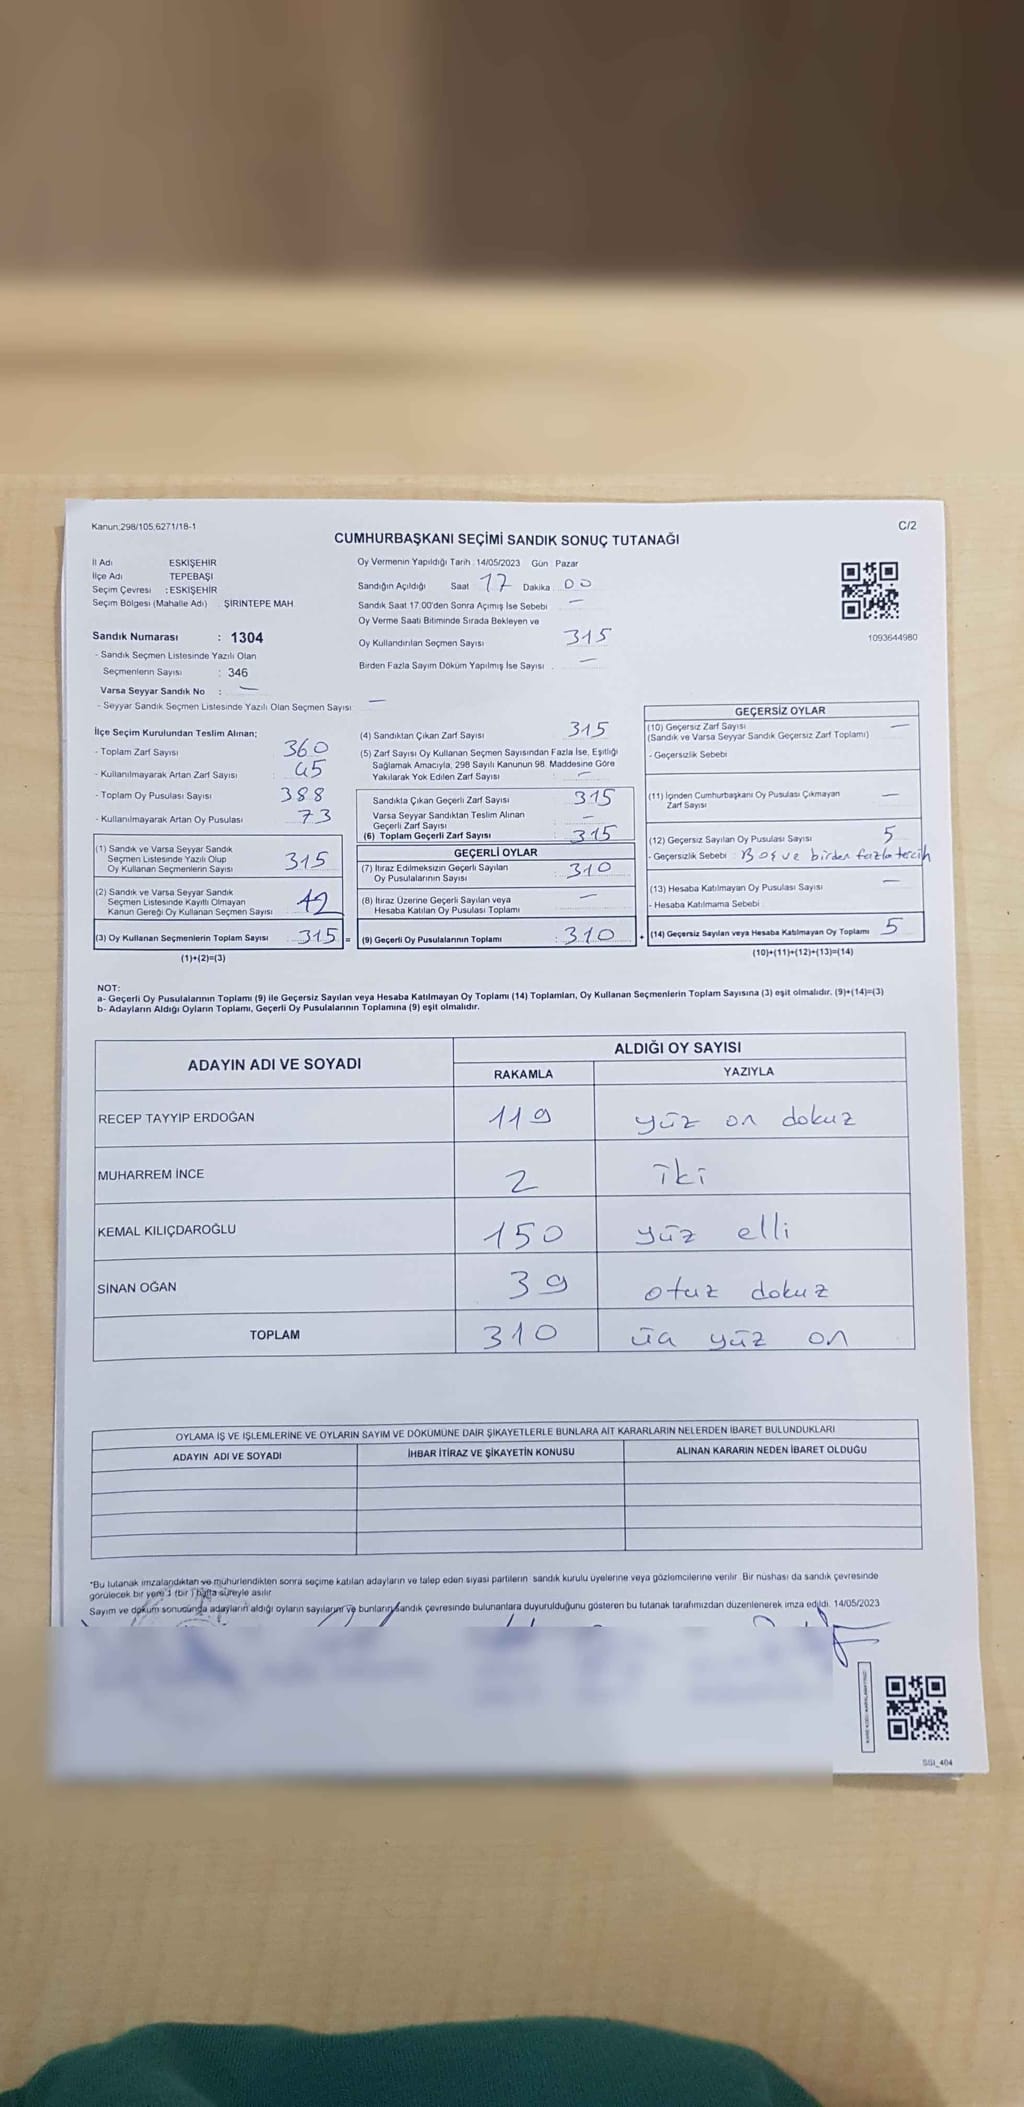 Kanun:298/105,6271/18-1
C/2
CUMHURBAŞKANI SEÇİMİ SANDIK SONUÇ TUTANAĞI
İl Adı ESKİŞEHİR
İlçe Adı TEPEBAŞI
Seçim Çevresi : ESKİŞEHİR
Seçim Bölgesi (Mahalle Adı) . ŞİRİNTEPE MAH.
Sandık Numarası : 1304
- Sandık Seçmen Listesinde Yazılı Olan
Seçmenlerin Sayısı : 346
Varsa Seyyar Sandık No : —
- Seyyar Sandık Seçmen Listesinde Yazılı Olan Seçmen Sayısı: —
Oy Vermenin Yapıldığı Tarih : 14/05/2023 Gün : Pazar
Sandığın Açıldığı Saat 17 Dakika 00
Sandık Saat 17.00'den Sonra Açımış İse Sebebi —
Oy Verme Saati Bitiminde Sırada Bekleyen ve
Oy Kullandırılan Seçmen Sayısı 315
Birden Fazla Sayım Döküm Yapılmış İse Sayısı —
1093644980
İlçe Seçim Kurulundan Teslim Alınan;
- Toplam Zarf Sayısı 360
- Kullanılmayarak Artan Zarf Sayısı : 45
- Toplam Oy Pusulası Sayısı 388
- Kullanılmayarak Artan Oy Pusulası 73
(1) Sandık ve Varsa Seyyar Sandık
Seçmen Listesinde Yazılı Olup
Oy Kullanan Seçmenlerin Sayısı : 315
(2) Sandık ve Varsa Seyyar Sandık
Seçmen Listesinde Kayıtlı Olmayan
Kanun Gereği Oy Kullanan Seçmen Sayısı
(3) Oy Kullanan Seçmenlerin Toplam Sayısı 315 =
(1)+(2)=(3)
(4) Sandıktan Çıkan Zarf Sayısı 315
(5) Zarf Sayısı Oy Kullanan Seçmen Sayısından Fazla İse, Eşitliği
Sağlamak Amacıyla, 298 Sayılı Kanunun 98. Maddesine Göre
Yakılarak Yok Edilen Zarf Sayısı : —
Sandıkta Çıkan Geçerli Zarf Sayısı : 315
Varsa Seyyar Sandıktan Teslim Alınan
Geçerli Zarf Sayısı : —
(6) Toplam Geçerli Zarf Sayısı : 315
GEÇERLİ OYLAR
(7) İtiraz Edilmeksizin Geçerli Sayılan
Oy Pusulalarının Sayısı : 310
(8) İtiraz Üzerine Geçerli Sayılan veya
Hesaba Katılan Oy Pusulası Toplamı —
(9) Geçerli Oy Pusulalarının Toplamı : 310 +
GEÇERSİZ OYLAR
(10) Geçersiz Zarf Sayısı —
(Sandık ve Varsa Seyyar Sandık Geçersiz Zarf Toplamı)
- Geçersizlik Sebebi
(11) İçinden Cumhurbaşkanı Oy Pusulası Çıkmayan —
Zarf Sayısı
(12) Geçersiz Sayılan Oy Pusulası Sayısı 5
- Geçersizlik Sebebi : Boş ve birden fazla tercih
(13) Hesaba Katılmayan Oy Pusulası Sayısı —
- Hesaba Katılmama Sebebi
(14) Geçersiz Sayılan veya Hesaba Katılmayan Oy Toplamı 5
(10)+(11)+(12)+(13)=(14)
NOT:
a- Geçerli Oy Pusulalarının Toplamı (9) ile Geçersiz Sayılan veya Hesaba Katılmayan Oy Toplamı (14) Toplamları, Oy Kullanan Seçmenlerin Toplam Sayısına (3) eşit olmalıdır. (9)+(14)=(3)
b- Adayların Aldığı Oyların Toplamı, Geçerli Oy Pusulalarının Toplamına (9) eşit olmalıdır.
ADAYIN ADI VE SOYADI ALDIĞI OY SAYISI
RAKAMLA YAZIYLA
RECEP TAYYİP ERDOĞAN 119 yüz on dokuz
MUHARREM İNCE 2 iki
KEMAL KILIÇDAROĞLU 150 yüz elli
SİNAN OĞAN 39 otuz dokuz
TOPLAM 310 üç yüz on
OYLAMA İŞ VE İŞLEMLERİNE VE OYLARIN SAYIM VE DÖKÜMÜNE DAİR ŞİKAYETLERLE BUNLARA AİT KARARLARIN NELERDEN İBARET BULUNDUKLARI
ADAYIN ADI VE SOYADI İHBAR İTİRAZ VE ŞİKAYETİN KONUSU ALINAN KARARIN NEDEN İBARET OLDUĞU
*Bu tutanak imzalandıktan ve mühürlendikten sonra seçime katılan adayların ve talep eden siyasi partilerin sandık kurulu üyelerine veya gözlemcilerine verilir. Bir nüshası da sandık çevresinde
görülecek bir yere 1 (bir) hafta süreyle asılır.
Sayım ve döküm sonucunda adayların aldığı oyların sayılarını ve bunların sandık çevresinde bulunanlara duyurulduğunu gösteren bu tutanak tarafımızdan düzenlenerek imza edildi. 14/05/2023
SSI_404